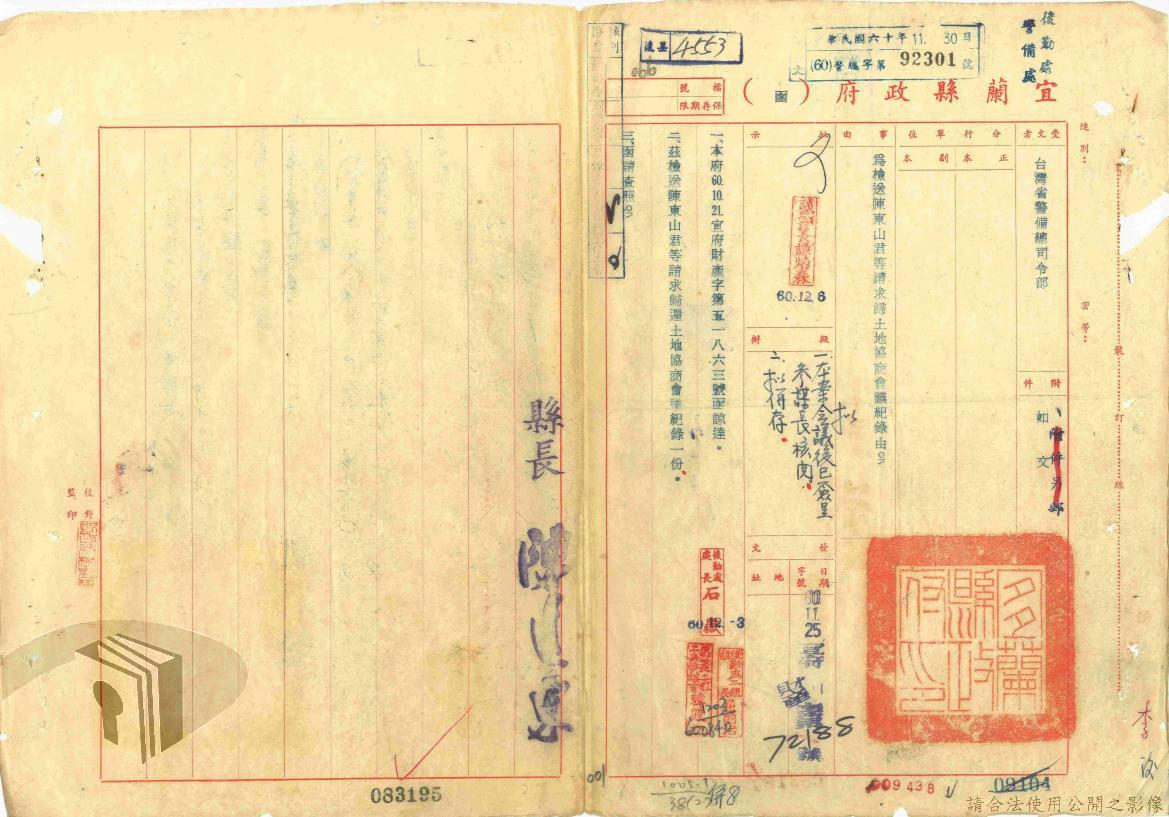 後勤處
警備處
華民國六十年11.30日
(60)警總字第92301號
文
後呈 4553
宜蘭縣政府（函）
檔號
保存期限
速別：
密等：
裝訂線
受文者
台灣省警備總司令部
附件
如文
附件另郵
分行單位
正本
副本
事由
為檢送陳東山君等請求歸土地協商會議紀錄由。
批示
60.12.6
擬辦
一、本案會議後已簽呈
參謀長核閱。
二、擬併存。
擬
發文
日期
字號
地址
60
11
25
72188
一、本府60.10.21.宜府財產字第五一八六三號函諒達。
二、茲檢送陳東山君等請求歸還土地協商會議紀錄一份。
三、函請查照。
後勤處
處長石
60.12.-3
1203
宜蘭縣政府印
縣長 陳
校對
監印
083195
001
009438
09104
請合法使用公開之影像